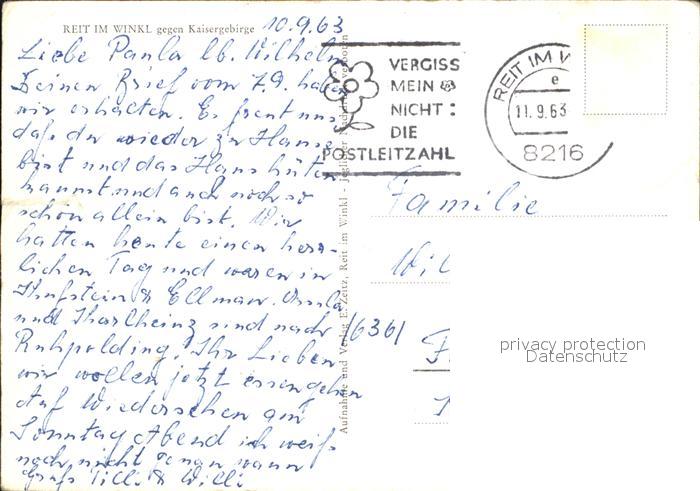 REIT IM WINKL gegen Kaisergebirge 10.9.63
Liebe Paula lb. Wilhelm
Deinen Brief vom 7.9. haben
wir erhalten. Es freut uns
daß du wieder zu Hause
bist und das Haus hüten
kannst und auch noch so
schön allein bist. Wir
hatten heute einen herr-
lichen Tag und waren in
Kufstein & Ellmau. Ursula
und Karlheinz sind nach
Ruhpolding. Ihr Lieben
wir wollen jetzt essen gehen
Auf Wiedersehen am
Sonntag Abend ich weiß
noch nicht genau wann
Gruß Tilli & Willi
Aufnahme und Verlag E. Zeitz, Reit im Winkl - jeglicher Nachdruck verboten
VERGISS
MEIN
NICHT:
DIE
POSTLEITZAHL
REIT IM W
e
11.9.63
8216
Familie
Wil
6361
F
privacy protection
Datenschutz